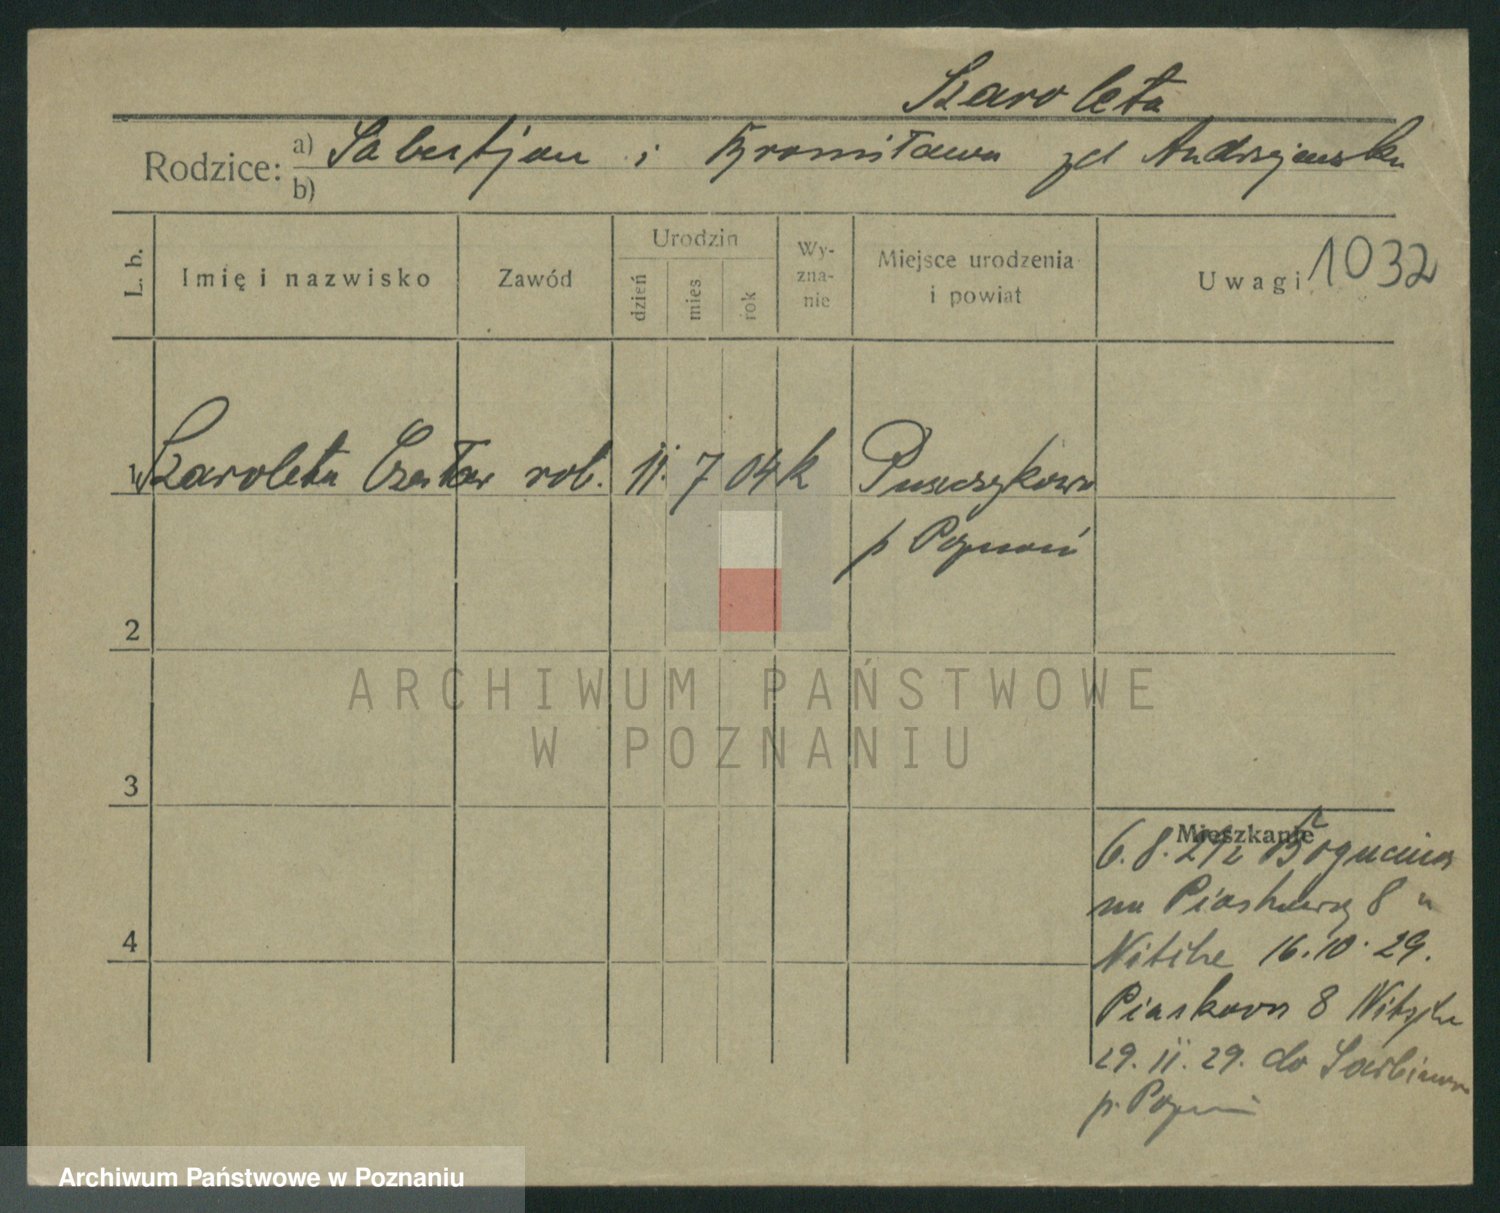 Szaroleta
Rodzice: a) Sabestjan i Bronisława zd Andrzejewska
b)
L. b. Imię i nazwisko Zawód Urodzin dzień mies rok Wy-zna-nie Miejsce urodzenia i powiat Uwagi 1032
1 Szaroleta Czesław rob. 11. 7 04 k Puszczykowo
p Poznań
2
3
4
Mieszkanie
6. 8.
na Piaskowej 8 u
Nitsche 16.10.29.
Piaskowa 8 Nitsche
29. 11. 29. do
p. Poznań
ARCHIWUM PAŃSTWOWE
W POZNANIU
Archiwum Państwowe w Poznaniu